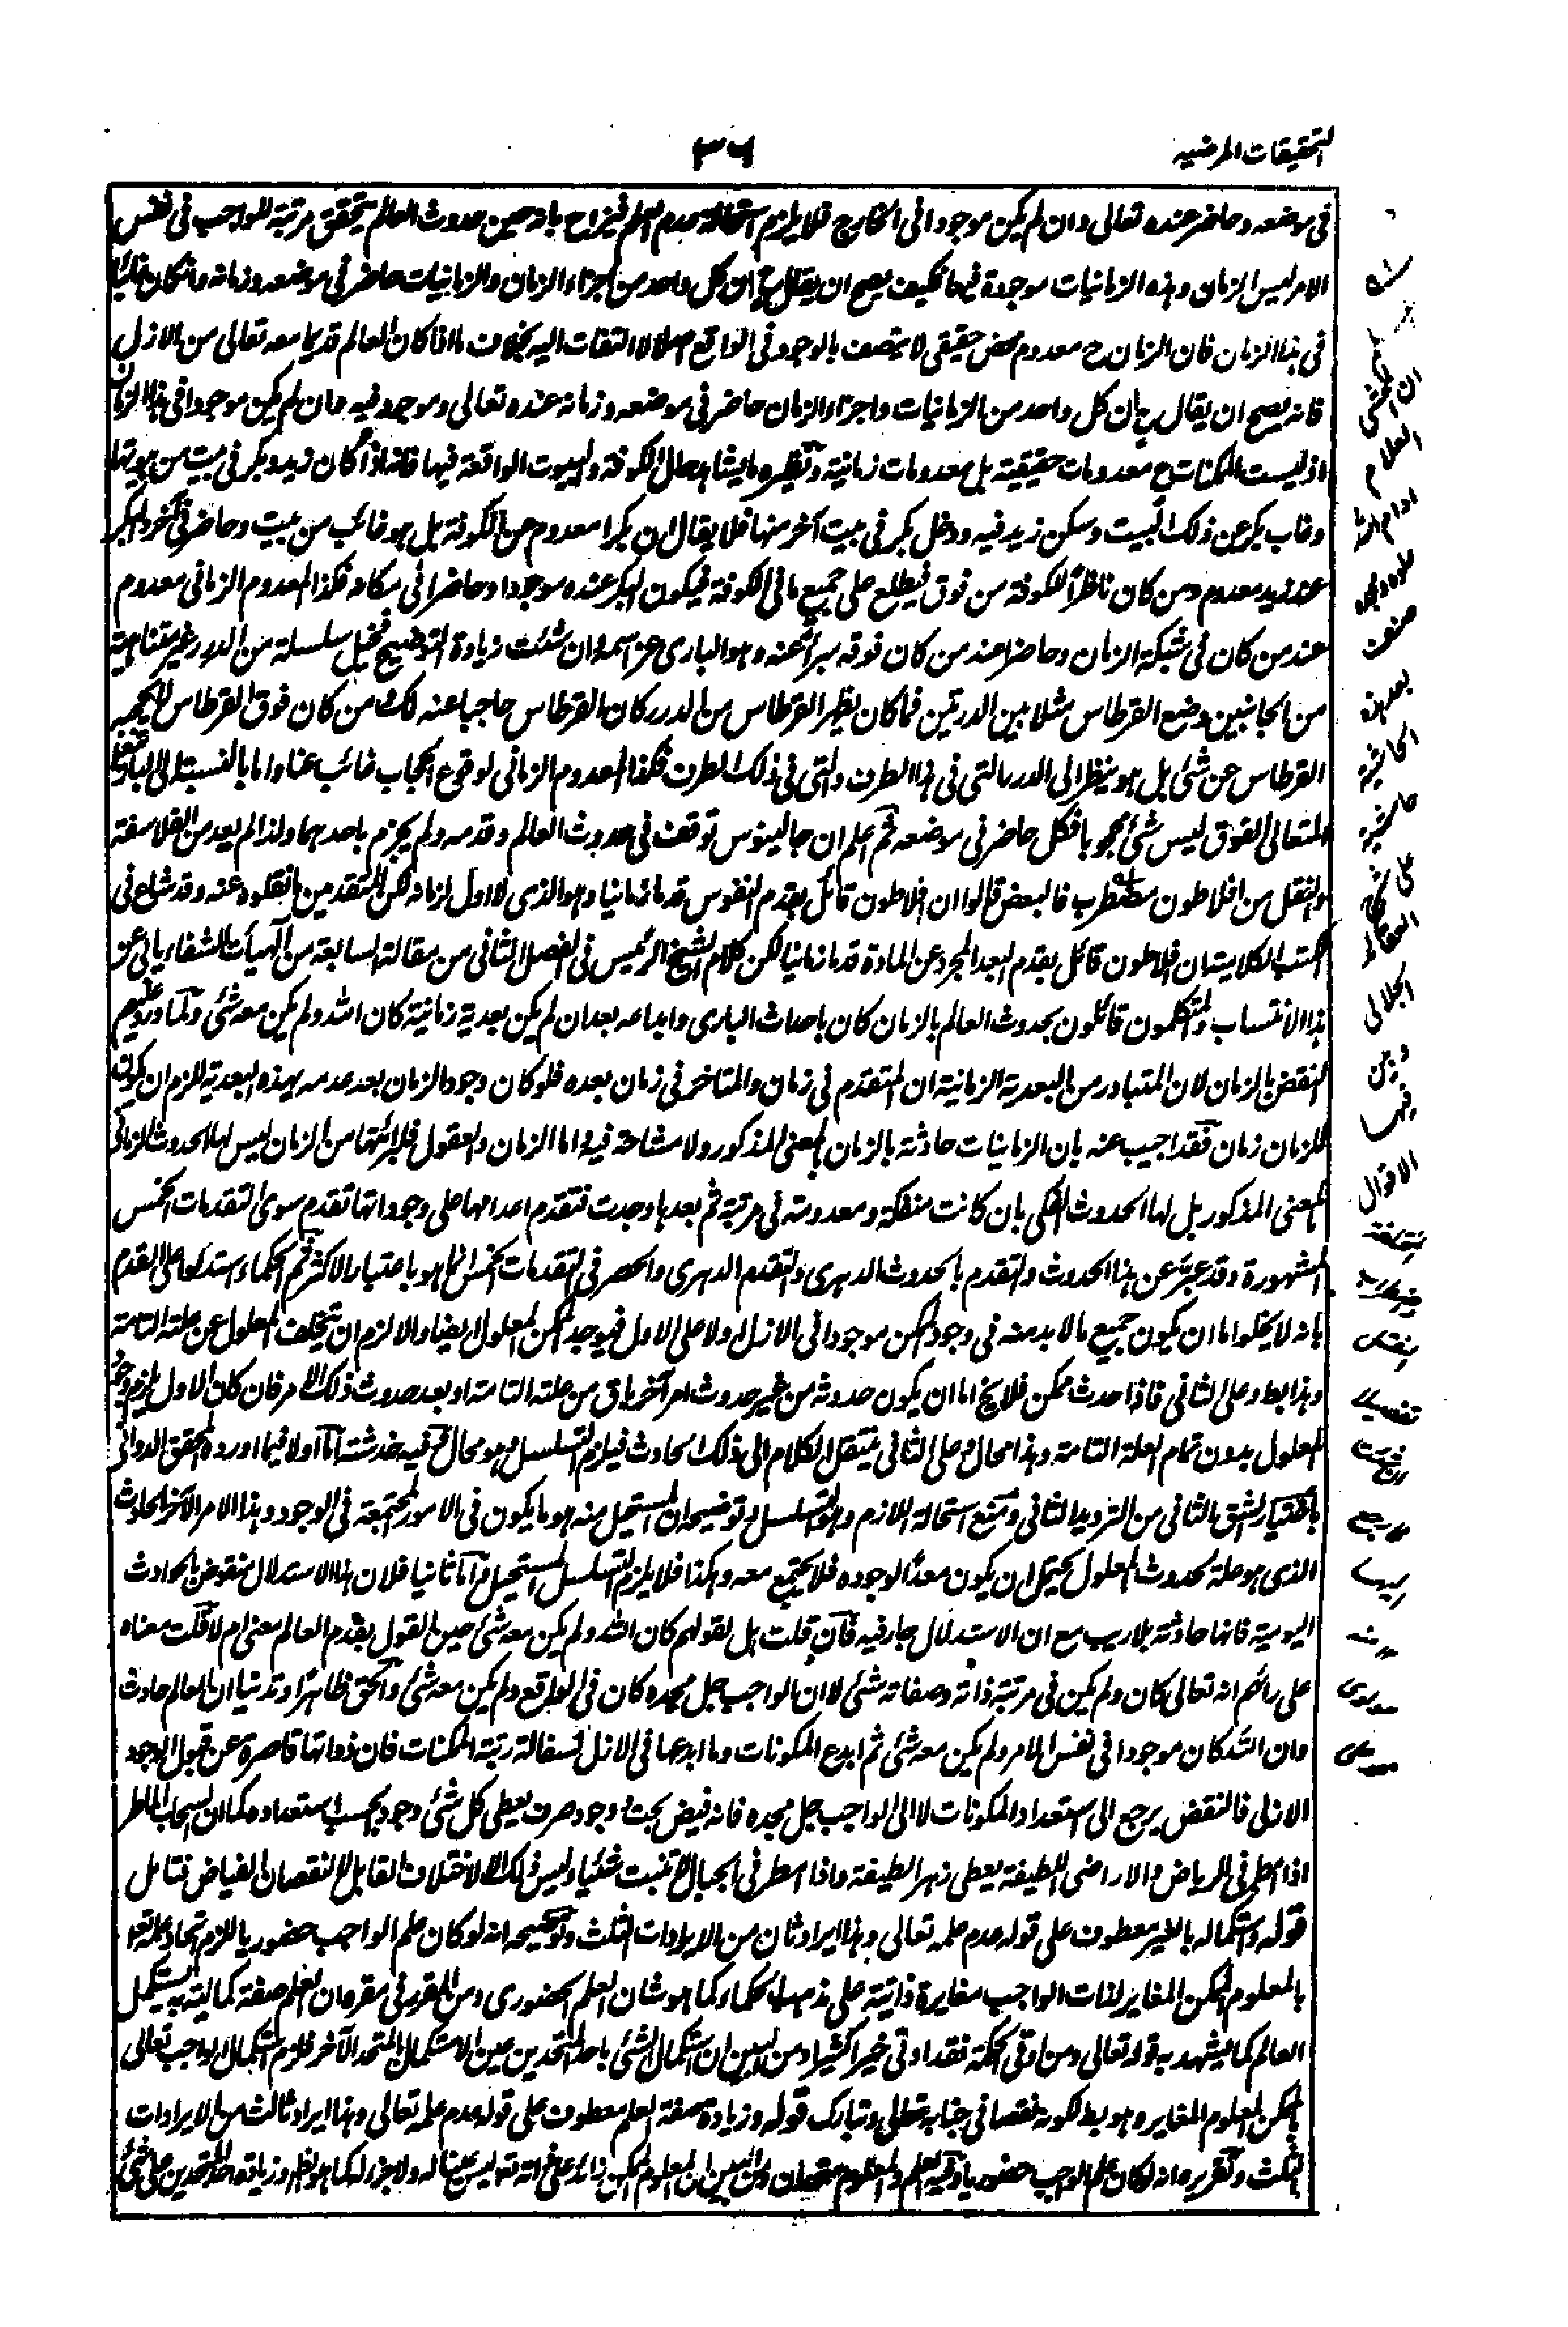 التحقيقات المرضيه
٣٦
فى موضعه وحاضر عنده تعالى وان لم يكن موجودا فى الخارج فلا يلزم استحالة عدم العلم فيزاح بانه حين حدوث العالم يتحقق مرتبة للواجب فى نفس
الامر ليس الزمان وهذه الزمانيات موجودة فيها فكيف يصح ان يقال ح ان كل واحد من اجزاء الزمان والزمانيات حاضر فى موضعه وزمانه وان كان غائبا
فى هذا الزمان فان الزمان ح معدوم محض حقيقى لا يتصف بالوجود فى الواقع اصلا لا التفات اليه بخلاف ما اذا كان العالم قديما معه تعالى من الازل
فانه يصح ان يقال ح ان كل واحد من الزمانيات واجزاء الزمان حاضر فى موضعه وزمانه عنده تعالى وموجود فيه وان لم يكن موجودا فى هذا الزمان
اذ ليست الممكنات ح معدومات حقيقية بل معدومات زمانية ونظيره ما يشاهد حال الكوفة والبيوت الواقعة فيها فانه اذا كان زيد وبكر فى بيت من بيوتها
وغاب بكر عن ذلك البيت وسكن زيد فيه ودخل بكر فى بيت آخر منها فلا يقال ان بكرا معدوم من الكوفة بل هو غائب من بيت وحاضر فى آخر والبكر
عند زيد معدوم ومن كان ناظرا للكوفة من فوق فيطلع على جميع ما فى الكوفة فيكون البكر عنده موجودا وحاضرا فى مكانه فكذا المعدوم الزمانى معدوم
عند من كان فى شبكة الزمان وحاضرا عند من كان فوقه مبرأ عنه وهو البارى عز اسمه وان شئت زيادة التوضيح فخيل سلسلة من الدرر غير متناهية
من الجانبين وضع القرطاس مثلا بين الدرتين فما كان بظهر القرطاس من الدرر كان القرطاس حاجبا عنه لك ومن كان فوق القرطاس لا يحجبه
القرطاس عن شئ بل هو ينظر الى الدرر التى فى هذا الطرف والتى فى ذلك الطرف فكذا المعدوم الزمانى لوقوع الحجاب غائب عنا واما بالنسبة الى البارى
المتعالى الفوق ليس شئ محجوبا فكل حاضر فى موضعه ثم اعلم ان جالينوس توقف فى حدوث العالم وقدمه ولم يجزم باحدهما ولذا لم يعد من الفلاسفة
والنقل من افلاطون مضطرب فالبعض قالوا ان افلاطون قائل بقدم النفوس قدما زمانيا وهو الذى لا اول لزمانه لكن المتقدمين ما نقلوه عنه وقد شاع فى
الكتب الكلامية ان افلاطون قائل بقدم البعد المجرد عن المادة قدما زمانيا لكن كلام الشيخ الرئيس فى الفصل الثانى من مقالة السابعة من آلهيات الشفاء يابى عن
هذا الانتساب والمتكلمون قائلون بحدوث العالم بالزمان كان باحداث البارى وابداعه بعد ان لم يكن بعدية زمانية كان الله ولم يكن معه شئ ولما ورد عليهم
النقض بالزمان لان المتبادر من البعدية الزمانية ان المتقدم فى زمان والمتاخر فى زمان بعده فلو كان وجود الزمان بعد عدمه بهذه البعدية للزم ان يكون
للزمان زمان فقد اجيب عنه بان الزمانيات حادثة بالزمان بالمعنى المذكور ولا مشاحة فيه واما الزمان والعقول فلبرائتها من الزمان ليس لها الحدوث الزمانى
بالمعنى المذكور بل لها الحدوث الفكى بان كانت منفكة ومعدومة فى مرتبة ثم بعدها وجدت فتقدم اعدامها على وجوداتها تقدم سوى التقدمات الخمس
المشهورة وقد عبر عن هذا الحدوث والتقدم بالحدوث الدهرى والتقدم الدهرى والحصر فى التقدمات الخمس انما هو باعتبار الاكثر ثم الحكماء استدلوا على القدم
بانه لا يخلو اما ان يكون جميع ما لا بد منه فى وجود الممكن موجودا فى الازل او لا على الاول فيوجد الممكن المعلول ايضا والا لزم ان يتخلف المعلول عن علته التامة
وهذا بط وعلى الثانى فاذا حدث ممكن فلا يخ اما ان يكون حدوثه من غير حدوث امر آخر باق من علته التامة او بعد حدوث ذلك الامر فان كان الاول يلزم وجود
المعلول بدون تمام العلة التامة وهذا محال وعلى الثانى ينتقل الكلام الى ذلك الحادث فيلزم التسلسل وهو محال وفيه خدشة اما اولا فيما اورده المحقق الدوانى
باختيار الشق الثانى من الترديد الثانى ومنع استحالة اللازم وهو التسلسل وتوضيحه ان المستحيل منه هو ما يكون فى الامور المجتمعة فى الوجود وهذا الامر الآخر الحادث
الذى هو علة لحدوث المعلول يحتمل ان يكون معدا لوجوده فلا يجتمع معه وهكذا فلا يلزم التسلسل المستحيل واما ثانيا فلان هذا الاستدلال منقوض بالحادث
اليومية فانها حادثة بلا ريب مع ان الاستدلال جار فيه فان قلت هل لقولهم كان الله ولم يكن معه شئ حين القول بقدم العالم معنى ام لا قلت معناه
على رائهم انه تعالى كان ولم يكن فى مرتبة ذاته وصفاته شئ لا ان الواجب جل مجده كان فى الواقع ولم يكن معه شئ والحق ظاهرا وتدينا ان العالم حادث
وان الله كان موجودا فى نفس الامر ولم يكن معه شئ ثم ابدع المكونات وما ابدعها فى الازل لسفالة رتبة الممكنات فان ذواتها قاصرة عن قبول الوجود
الازلى فالنقض يرجع الى استعداد المكونات لا الى الواجب جل مجده فانه فيض بحت وجود صرف يعطى كل شئ وجودا بحسب استعداده كما ان السحاب الماطر
اذا مطر فى الرياض والاراضى اللطيفة يعطى زهرا لطيفة واذا مطر فى الجبال لا تنبت شئيا وليس ذلك الا لاختلاف القابل لا لنقصان الفياض فتامل
قوله واستكماله بالغير معطوف على قوله عدم علمه تعالى وهذا ايراد ثان من الايرادات الثلث وتوضيحه انه لو كان علم الواجب حضوريا للزم اتحاد علمه تعا
بالمعلوم الممكن المغاير لذات الواجب مغايرة ذاتية على مذهب الحكماء كما هو شان العلم الحضورى ومن المقرر فى مقره ان العلم صفة كمالية به يستكمل
العالم كما يشهد به قوله تعالى ومن اوتى الحكمة فقد اوتى خيرا كثيرا ومن البين ان استكمال الشئ باحد المتحدين عين الاستكمال بالمتحد الآخر فلزم استكمال الواجب تعالى
بالممكن المعلوم المغاير وهو بط لكونه نقصا فى جنابه تعالى وتبارك قوله وزيادة صفة العلم معطوف على قوله عدم علمه تعالى وهذا ايراد ثالث من الايرادات
الثلث وتقريره انه لو كان علم الواجب حضوريا وفيه العلم والمعلوم متحدان ومن البين ان المعلوم الممكن زائد على ذاته تع ليس عينا له ولا جزء له كما هو الظاهر وزيادة احد المتحدين على شئ
ان
العلام
صفة
بعد
الجلالى
وبين
الاقوال